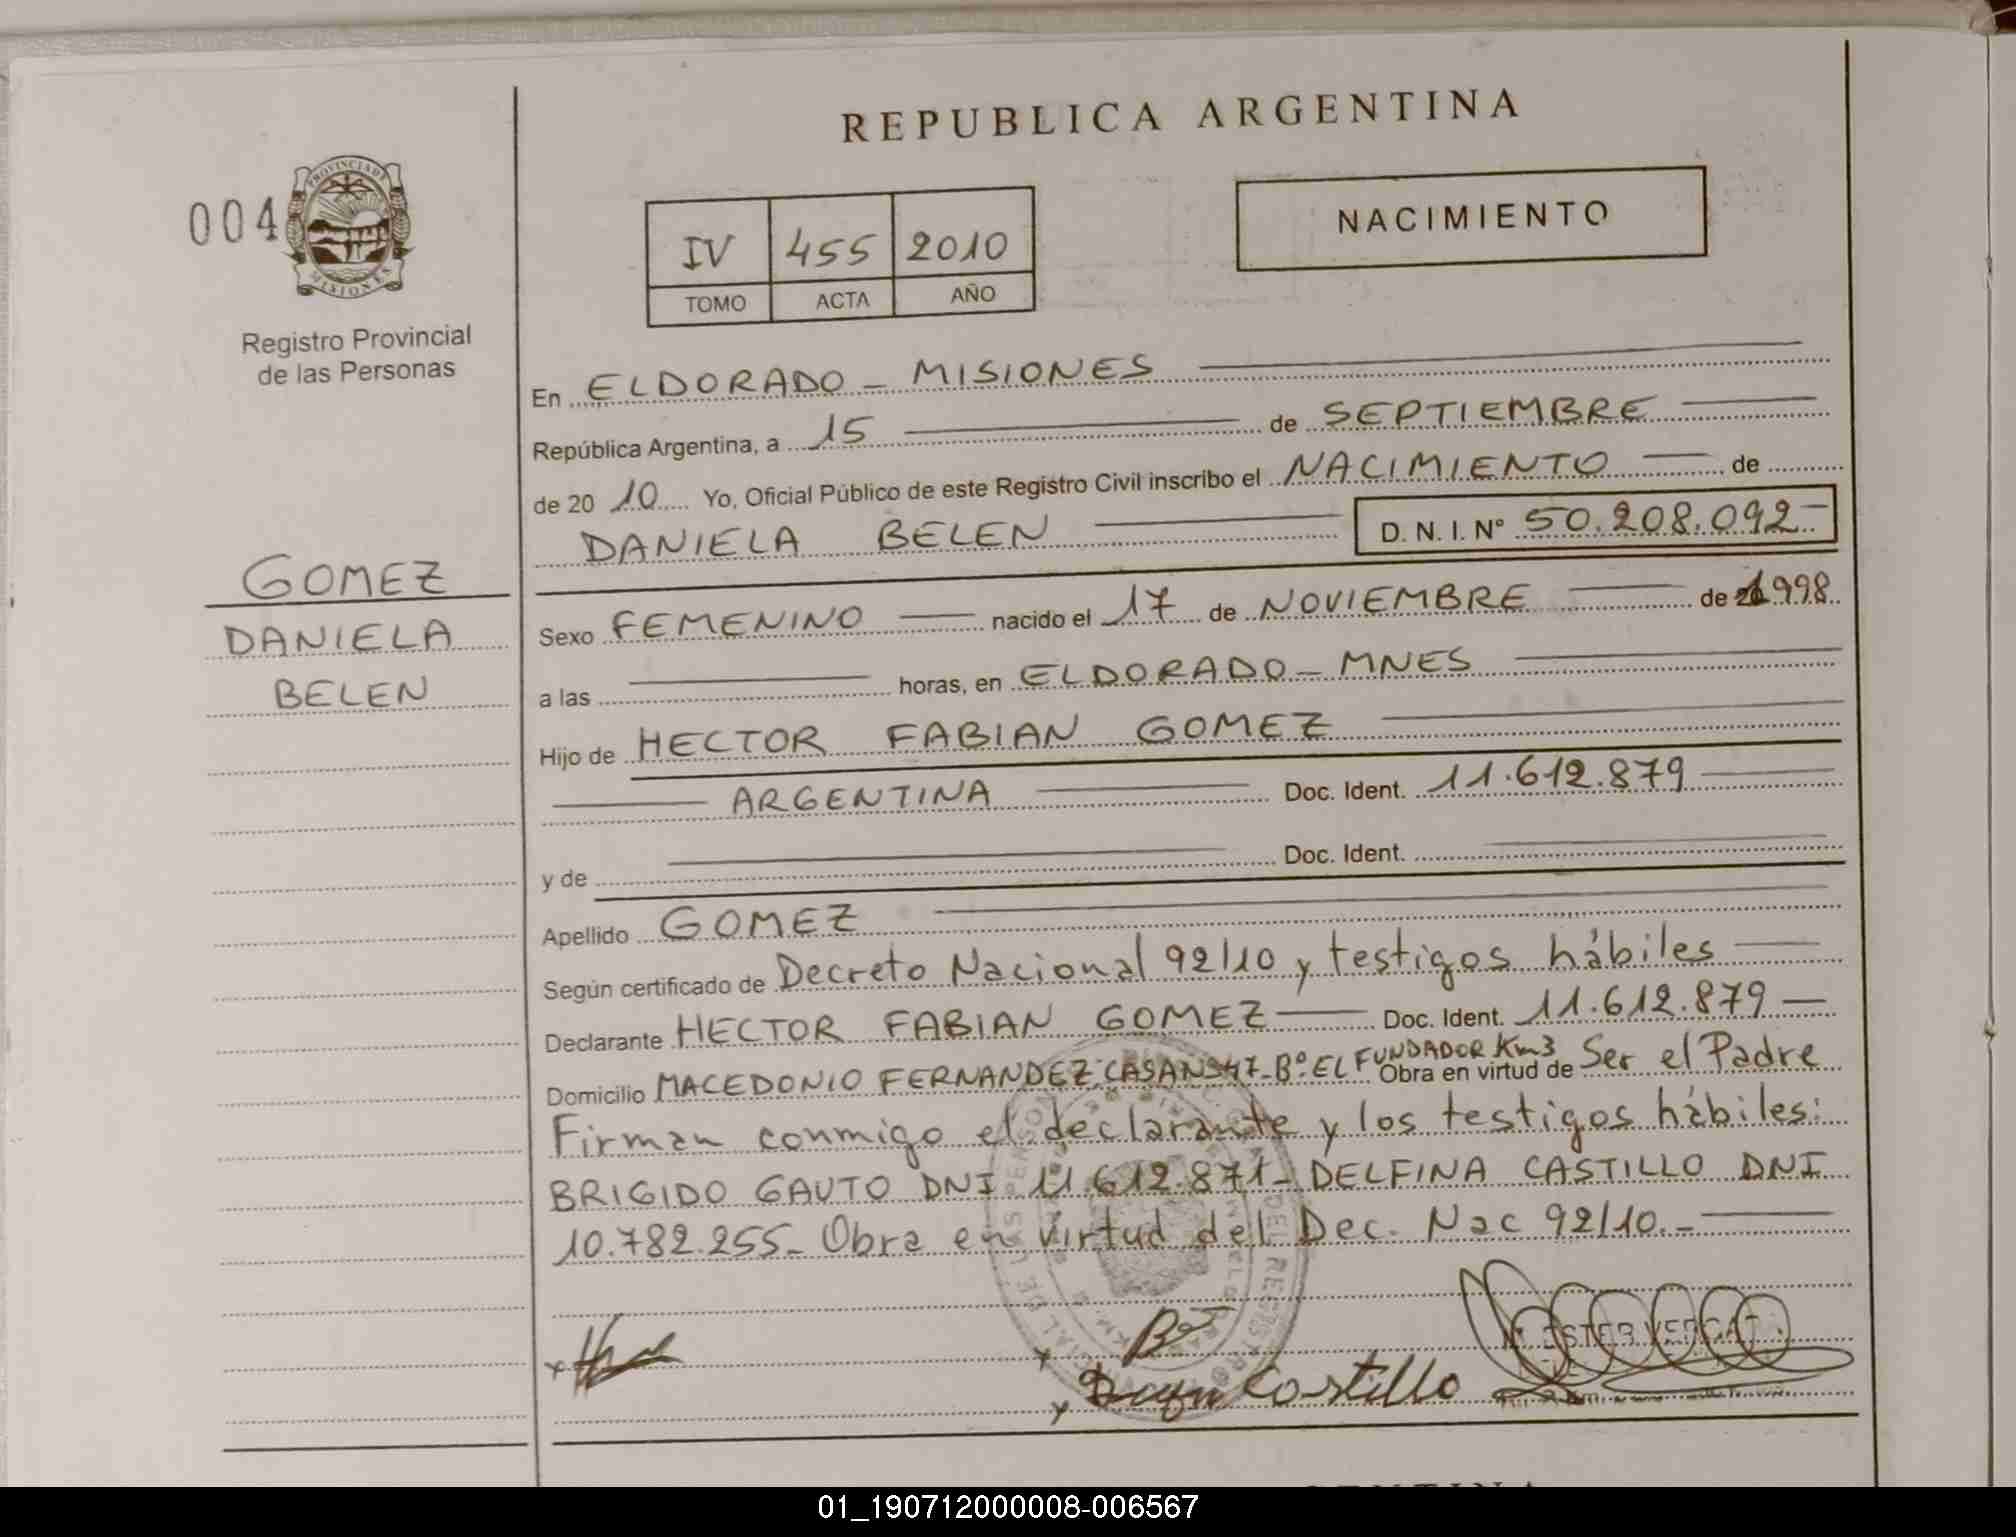 REPUBLICA ARGENTINA
004
PROVINCIA DE
MISIONES
Registro Provincial
de las Personas
IV 455 2010
TOMO ACTA AÑO
NACIMIENTO
En ELDORADO - MISIONES
República Argentina, a 15 de SEPTIEMBRE
de 20 10 Yo, Oficial Público de este Registro Civil inscribo el NACIMIENTO de
DANIELA BELEN D. N. I. Nº 50.208.092-
GOMEZ
DANIELA
BELEN
Sexo FEMENINO nacido el 17 de NOVIEMBRE de 1998
a las horas, en ELDORADO - MNES
Hijo de HECTOR FABIAN GOMEZ
ARGENTINA Doc. Ident. 11.612.879
y de Doc. Ident.
Apellido GOMEZ
Según certificado de Decreto Nacional 92/10 y testigos hábiles
Declarante HECTOR FABIAN GOMEZ Doc. Ident. 11.612.879
Domicilio MACEDONIO FERNANDEZ, CASA Nº 47-Bº EL FUNDADOR Km3 Obra en virtud de Ser el Padre
Firman conmigo el declarante y los testigos hábiles:
BRIGIDO GAUTO DNI 11.612.871- DELFINA CASTILLO DNI
10.782.255- Obra en virtud del Dec. Nac 92/10.-
Castillo
01_190712000008-006567